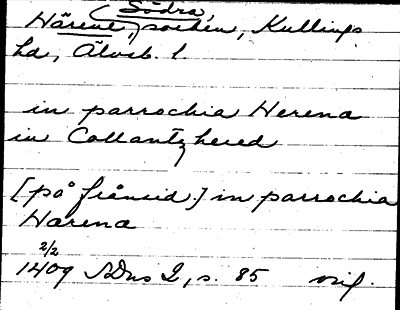 (Södra)
Härene socken, Kullings
hd, Älvsb. l.
in parrochia Herena
in Collantz hered
[på frånsid.] in parrochia
Harena
2/2
1409 SDns 2, s. 85 orig.